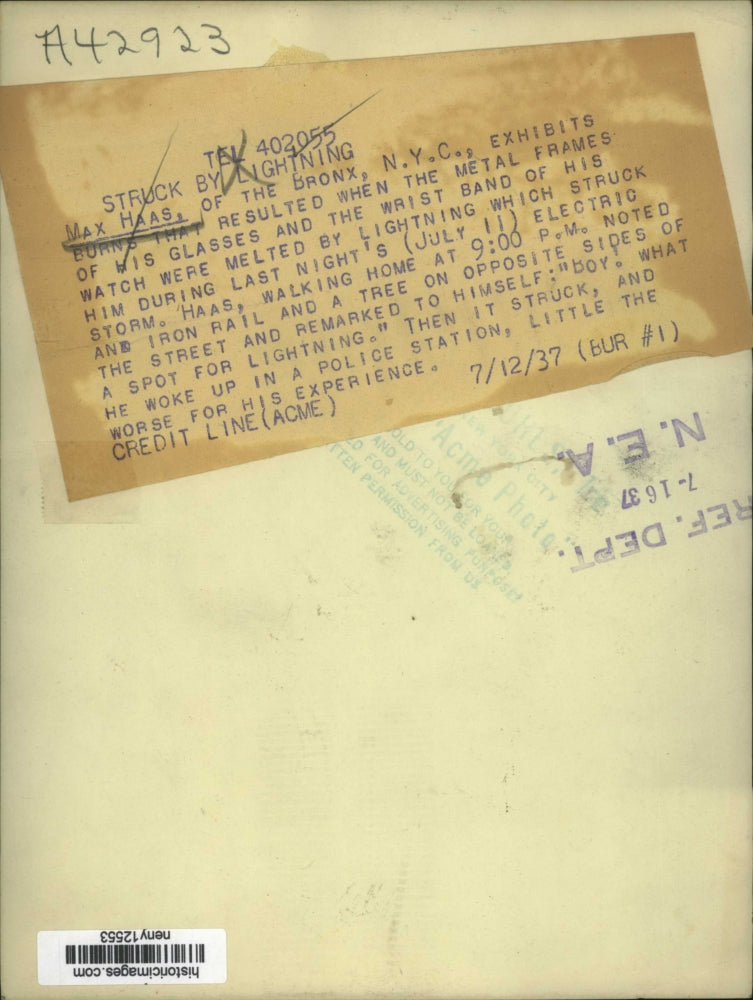 A42923
TEL 402055
STRUCK BY LIGHTNING
MAX HAAS, OF THE BRONX, N.Y.C., EXHIBITS
BURNS THAT RESULTED WHEN THE METAL FRAMES
OF HIS GLASSES AND THE WRIST BAND OF HIS
WATCH WERE MELTED BY LIGHTNING WHICH STRUCK
HIM DURING LAST NIGHT'S (JULY 11) ELECTRIC
STORM. HAAS, WALKING HOME AT 9:00 P.M. NOTED
AND IRON RAIL AND A TREE ON OPPOSITE SIDES OF
THE STREET AND REMARKED TO HIMSELF:"BOY. WHAT
A SPOT FOR LIGHTNING." THEN IT STRUCK, AND
HE WOKE UP IN A POLICE STATION, LITTLE THE
WORSE FOR HIS EXPERIENCE. 7/12/37 (BUR #1)
CREDIT LINE(ACME)
"Acme Photo"
OLD TO YOU FOR YOUR
AND MUST NOT BE LOANED
FOR ADVERTISING PURPOSES
PERMISSION FROM US
REF. DEPT.
7-16 37
N.E.A.
historicimages.com
neny12553